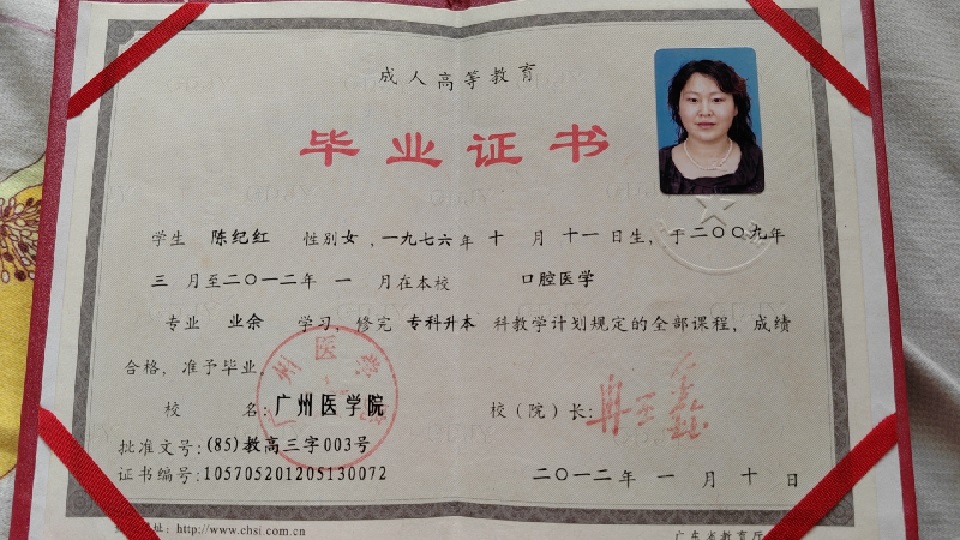 成人高等教育
毕业证书
学生 陈纪红 性别女，一九七六年 十 月 十一日生，于二〇〇九年
三 月至二〇一二年 一 月在本校 口腔医学
专业 业余 学习，修完 专科升本 科教学计划规定的全部课程，成绩
合格，准予毕业。
校 名：广州医学院 校（院）长：
批准文号：(85)教高三字003号
证书编号：105705201205130072 二〇一二年 一 月 十 日
址：http://www.chsi.com.cn 广东省教育厅